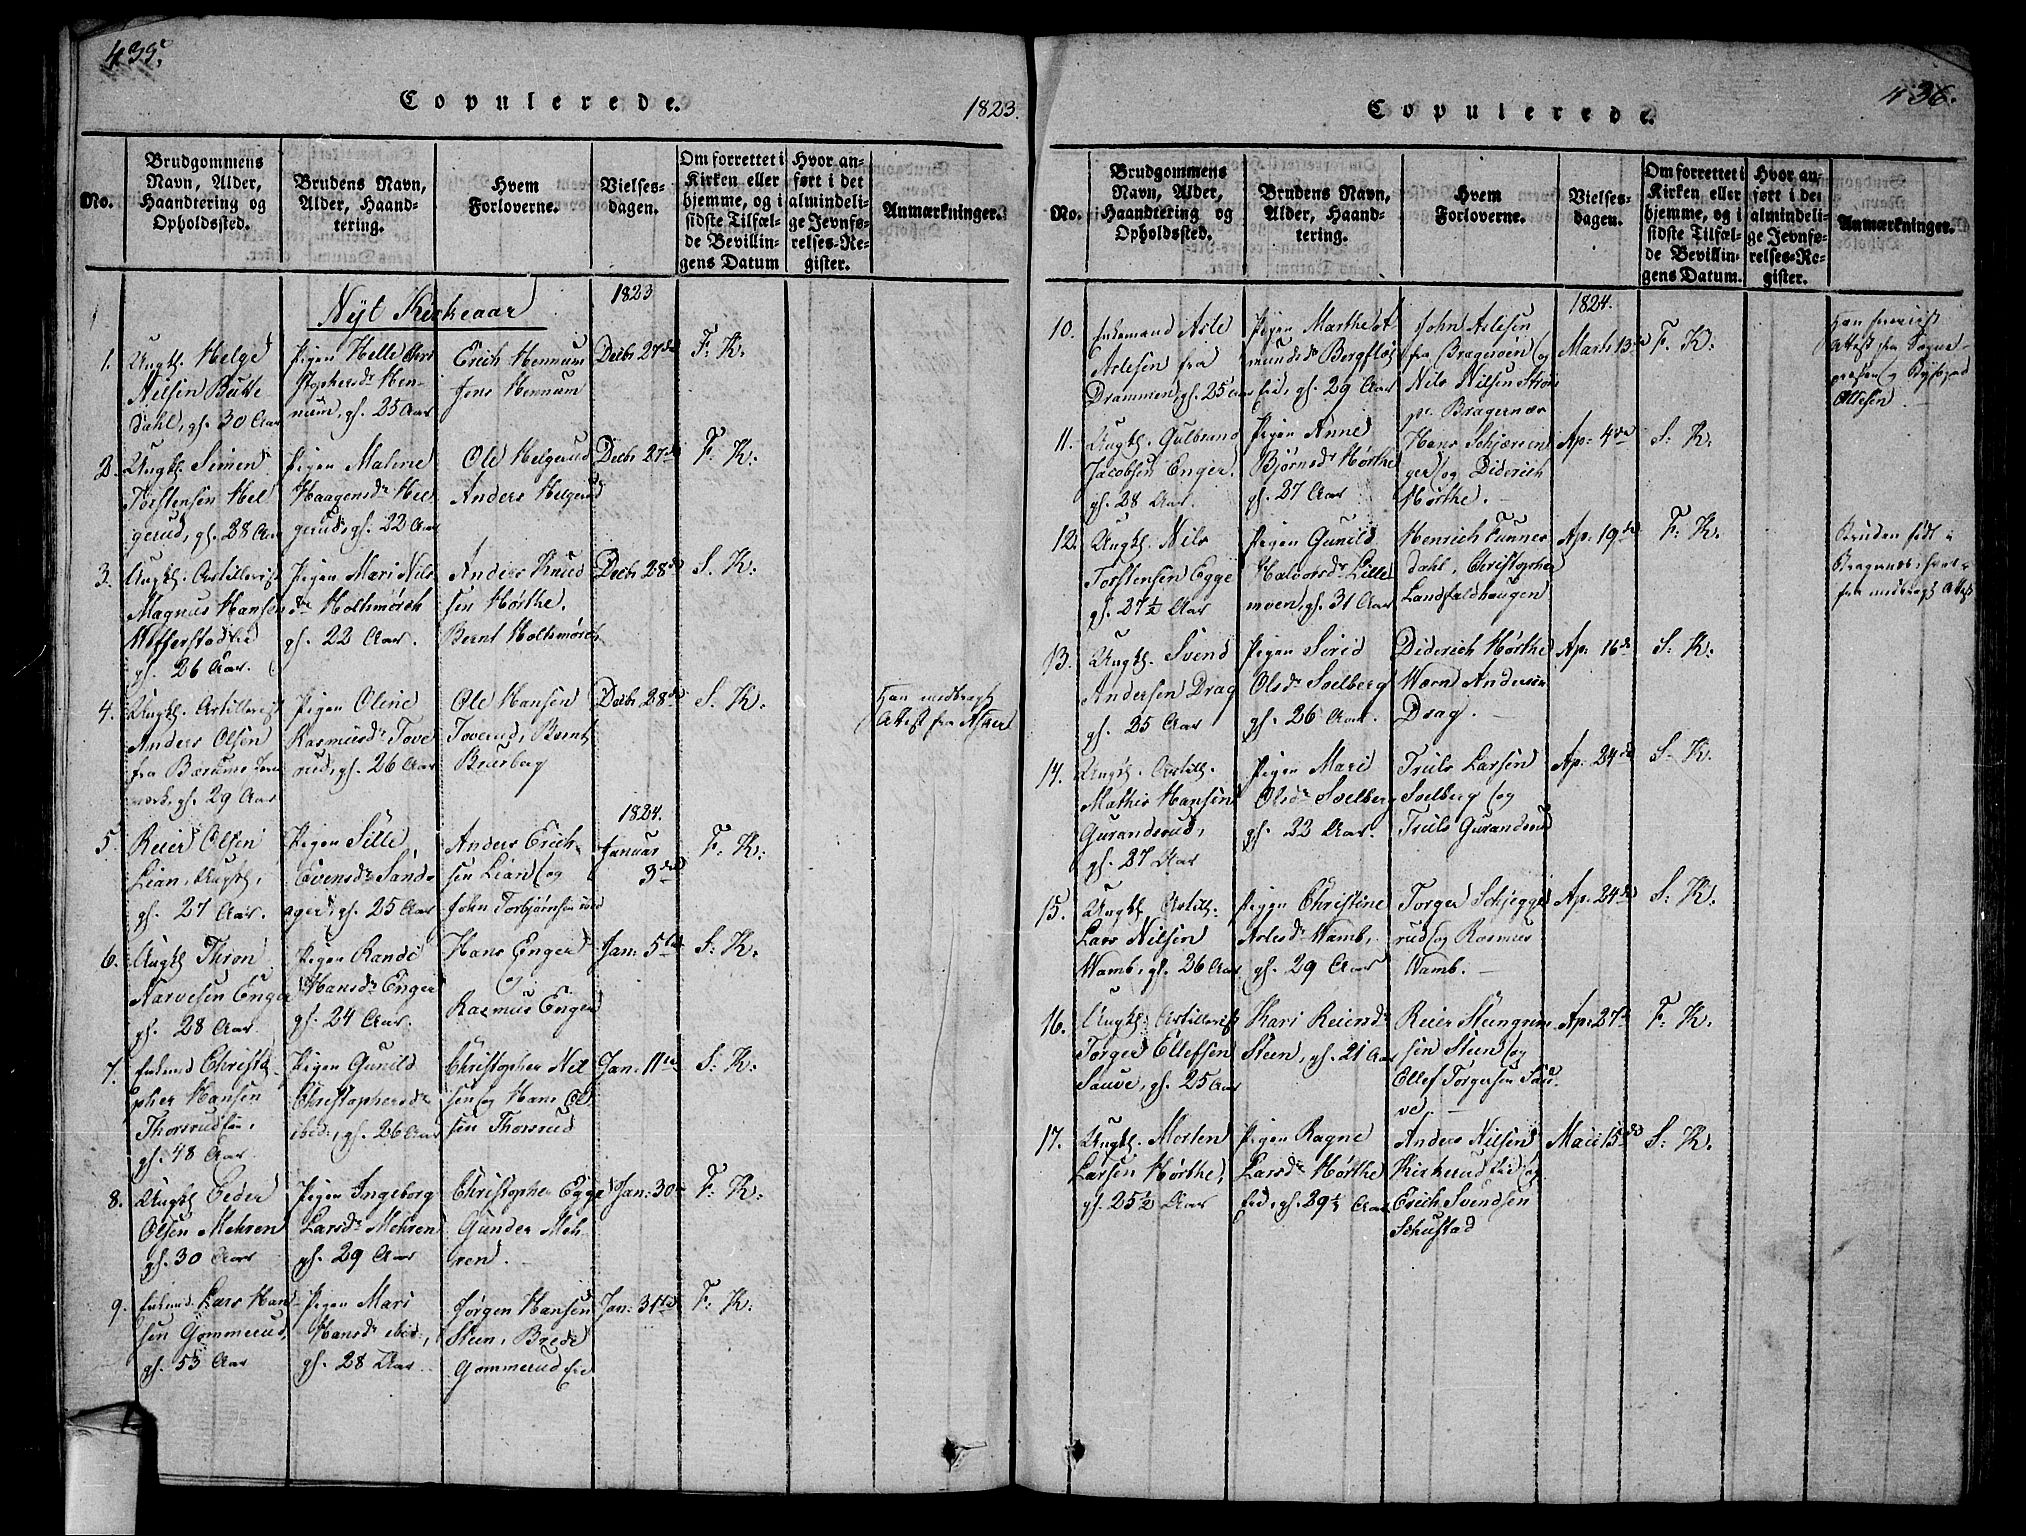 435.
Copulerede.
1823.
No.
Brudgommens
Navn, Alder,
Haandtering og
Opholdssted.
Brudens Navn,
Alder, Haand-
tering.
Hvem
Forloverne.
Vielses-
dagen.
Om forrettet i
Kirken eller
hjemme, og i
sidste Tilfæl-
de Bevillin-
gens Datum
Hvor an-
ført i det
almindeli-
ge Jevnfø-
relses-Re-
gister.
Anmærkninger.
Nyt Kirkeaar
1823
1.
Ungk. Helge
Nilsen Butte
dahl, gl. 30 Aar
Pigen Helle Chri
stophersdr Hen-
num, gl. 25 Aar
Erich Hennum
Jens Hennum
Decbr 27de
F. K:
2.
Ungk. Simen
Torstensen Hel
gerud, gl. 28 Aar
Pigen Malene
Haagensdr Hel
gerud, gl. 22 Aar
Ole Helgerud
Anders Helgerud
Decbr 27de
F. K:
3.
Ungk. Artillerist
Magnus Hansen
gl. 26 Aar.
Pigen Mari Nils
dr Holtsmörch
gl. 22 Aar.
Anders Knud
sen Hørthe.
Bernt Holtsmörch
Decbr 28de
S. K:
4.
Ungk. Artillerist
Anders Olsen
fra Bærums Jern
værk, gl. 29 Aar
Pigen Oline
Rasmusdr Tove
rud, gl. 26 Aar
Ole Hansen
Toverud, Bernt
Decbr 28de
S. K:
Han medbragt
Attest fra Asker
1824.
5.
Reier Olsen
Lian, Ungk,
gl. 27 Aar.
Pigen Sille
Evensdr Sand-
ager, gl. 25 Aar
Anders Erich-
sen Lian og
John Torbjørnsen ibid
Januar
3de
F. K:
6.
Ungk Thron
Narvesen Enger
gl. 28 Aar.
Pigen Rande
Hansdr Enger
gl. 24 Aar.
Hans Enger
og
Rasmus Enger
Jan: 5te
S: K:
7.
Enkemd Christo-
pher Hansen
gl. 48 Aar.
Pigen Gunild
Christophersdr
ibid:, gl. 26 Aar
Christopher Nil
sen og Hans Ol
sen Thorsrud
Jan: 11te
S: K:
8.
Ungk Peder
Olsen Mehren
gl. 30 Aar
Pigen Ingeborg
Larsdr Mehren
gl. 29 Aar
Christopher Egge
Gunder Meh-
ren.
Jan: 30te
F: K:
9.
Enkemd Lars Han
sen Gommerud,
gl. 53 Aar
Pigen Mari
Hansdr ibid:,
gl. 28 Aar.
Jørgen Hansen
Steen, Brede
Gommerud
Jan: 31te
F. K:
436.
Copulerede.
No.
Brudgommens
Navn, Alder,
Haandtering og
Opholdssted.
Brudens Navn,
Alder, Haand-
tering.
Hvem
Forloverne.
Vielses-
dagen.
Om forrettet i
Kirken eller
hjemme, og i
sidste Tilfæl-
de Bevillin-
gens Datum.
Hvor an-
ført i det
almindeli-
ge Jevnfø-
relses-Re-
gister.
Anmærkninger.
1824.
10.
Enkemand Asle
Aslesen fra
Drammen, gl. 25 Aar
Pigen Marthe
gl. 29 Aar
John Aslesen
fra Bragerøen og
Nils Nilsen
Bragernæs
Marts 13de
F. K:
Attest fra Sogne-
præsten og
11.
Ungk. Gulbrand
Jacobsen Enger.
gl. 28 Aar.
Pigen Anne
Bjørnsdr Hørthe
gl. 27 Aar
Hans
og Diderich
Hørthe.
Ap: 4de
S: K.
12.
Ungk. Nils
Torstensen Egge
gl. 27½ Aar
Pigen Gunild
Halvorsdr Lille
moen, gl. 31 Aar
Henrich Tunner
dahl, Christopher
Landfaldhougen
Ap: 19de
F. K:
Bruden født i
Bragernæs, hvor-
fra medbragt Attest
13.
Ungk. Svend
Andersen Drag
gl. 25 Aar
Pigen Sirid
Olsdr Soelberg
gl. 26 Aar.
Diderich Hørthe
Andersen
Drag.
Ap: 16de
S: K:
14.
Ungk. Artill.
Mathis Hansen
Guranderud,
gl. 27 Aar
Pigen Mari
Olsdr Soelberg
gl. 22 Aar.
Truls Larsen
Soelberg og
Truls Guranderud
Ap: 24de
S. K.
15.
Ungk Artill:
Lars Nilsen
Wamb, gl. 26 Aar
Pigen Christine
Aslesdr Wamb,
gl. 29 Aar
Torger Schjegge
rud og Rasmus
Wamb.
Ap: 24de
S. K:
16.
Ungk Artillerist
Torger Ellefsen
Sauve, gl. 25 Aar
Kari Reiersdr
Steen, gl. 21 Aar
Reier Steengrim
sen Steen og
Ellef Torgersen Sau
ve.
Ap: 27de
F: K.
17.
Ungk. Morten
Larsen Hørthe,
gl. 25½ Aar
Pigen Ragne
Larsdr Hørthe
eid, gl. 29½ Aar
Anders Nilsen
Kirkerud og
Erich Svendsen
Schustad
Maii 15de
S: K: